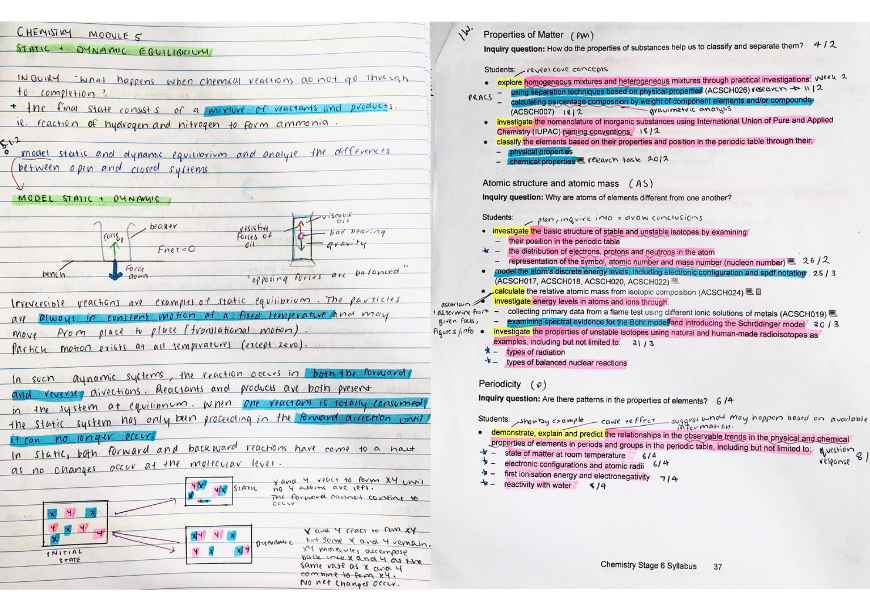 CHEMISTRY MODULE 5
STATIC + DYNAMIC EQUILIBRIUM
INQUIRY "What happens when chemical reactions do not go through
to completion?
+ the final state consists of a mixture of reactants and products.
ie. reaction of hydrogen and nitrogen to form ammonia.
model static and dynamic equilibrium and analyse the differences
between open and closed systems
MODEL STATIC + DYNAMIC
force
beaker
Fnet=0
bench
Force down
resistive forces of oil
viscous oil
ball bearing
gravity
"opposing forces are balanced"
Irreversible reactions are examples of static equilibrium. The particles
are always in constant motion at a fixed temperature and may
move from place to place (translational motion).
Particle motion exists at all temperatures (except zero).
In such dynamic systems, the reaction occurs in both the forward
and reverse directions. Reactants and products are both present
in the system at equilibrium. When one reactant is totally consumed
the static system has only been proceeding in the forward direction until
it can no longer occur
In static, both forward and backward reactions have come to a halt
as no changes occur at the molecular level.
INITIAL
STATE
STATIC
X and Y react to form XY until
no Y atoms are left.
The forward cannot continue to
occur
DYNAMIC
X and Y react to form XY
but some X and Y remain.
XY molecules decompose
back into X and Y at the
same rate as X and Y
combine to form XY.
No net changes occur.
Properties of Matter (PM)
Inquiry question: How do the properties of substances help us to classify and separate them? 4/2
Students: reveal core concepts
• explore homogeneous mixtures and heterogeneous mixtures through practical investigations: week 2
PRACS – using separation techniques based on physical properties (ACSCH026) research → 11/2
– calculating percentage composition by weight of component elements and/or compounds
(ACSCH007) 18/2 gravimetric analysis
• investigate the nomenclature of inorganic substances using International Union of Pure and Applied
Chemistry (IUPAC) naming conventions 18/2
• classify the elements based on their properties and position in the periodic table through their:
– physical properties
– chemical properties research task 20/2
Atomic structure and atomic mass (AS)
Inquiry question: Why are atoms of elements different from one another?
Students: plan, inquire into + draw conclusions
• investigate the basic structure of stable and unstable isotopes by examining:
– their position in the periodic table
– the distribution of electrons, protons and neutrons in the atom
– representation of the symbol, atomic number and mass number (nucleon number) 26/2
• model the atom's discrete energy levels, including electronic configuration and spdf notation 25/3
(ACSCH017, ACSCH018, ACSCH020, ACSCH022)
• calculate the relative atomic mass from isotopic composition (ACSCH024)
ascertain/determine from given facts, figures/info
• investigate energy levels in atoms and ions through:
– collecting primary data from a flame test using different ionic solutions of metals (ACSCH019)
– examining spectral evidence for the Bohr model and introducing the Schrödinger model 20/3
• investigate the properties of unstable isotopes using natural and human-made radioisotopes as
examples, including but not limited to: 21/3
– types of radiation
– types of balanced nuclear reactions
Periodicity (P)
Inquiry question: Are there patterns in the properties of elements? 6/4
Students: show by example cause + effect suggest what may happen based on available information.
• demonstrate, explain and predict the relationships in the observable trends in the physical and chemical
properties of elements in periods and groups in the periodic table, including but not limited to: question response 8/
– state of matter at room temperature 6/4
– electronic configurations and atomic radii 6/4
– first ionisation energy and electronegativity 7/4
– reactivity with water 8/4
Chemistry Stage 6 Syllabus 37